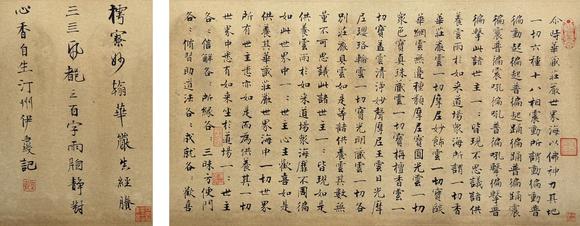 尒時華藏莊嚴世界海以佛神力其地
一切六種十八相震動所謂動徧動普
徧動起徧起普徧起踊徧踊普徧踊震
徧震普徧震吼徧吼普徧吼擊徧擊普
徧擊此諸世主一一皆現不思議諸供
養雲雨於如來道場衆海所謂一切香
華莊嚴雲一切摩尼妙飾雲一切寶焰
華網雲無邊種類摩尼寶圓光雲一切
衆色寶真珠藏雲一切寶栴檀香雲一
切寶蓋雲清淨妙聲摩尼王雲日光摩
尼瓔珞輪雲一切寶光明藏雲一切各
別莊嚴具雲如是等諸供養雲其數無
量不可思議此諸世主一一皆現如是
供養雲雨於如來道場衆海靡不周徧
如此世界中一一世主心生歡喜如是
供養其華藏莊嚴世界海中一切世界
所有世主悉亦如是而爲供養其一切
世界中悉有如來坐於道場一一世主
各各信解各各所緣各各三昧方便門
各各修習助道法各各成就各各歡喜
樗寮妙翰華嚴經賸
三三風三百字雨靜對
心香自生汀州伊記